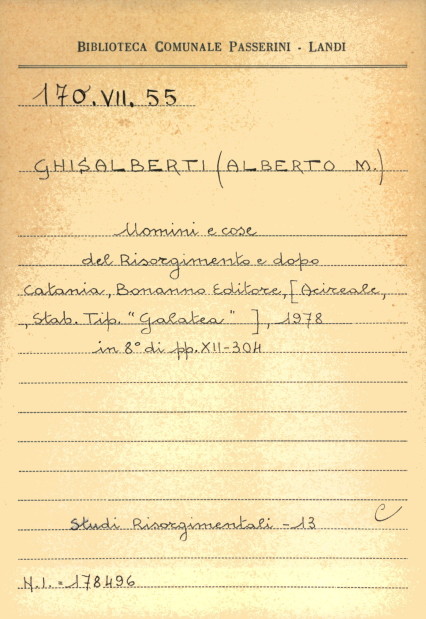 BIBLIOTECA COMUNALE PASSERINI - LANDI
170.VII.55
GHISALBERTI (ALBERTO M.)
Uomini e cose
del Risorgimento e dopo
Catania, Bonanno Editore, [Acireale,
, Stab. Tip. "Galatea" ], 1978
in 8° di pp. XII-304
Studi Risorgimentali - 13
C
N.I. = 178496